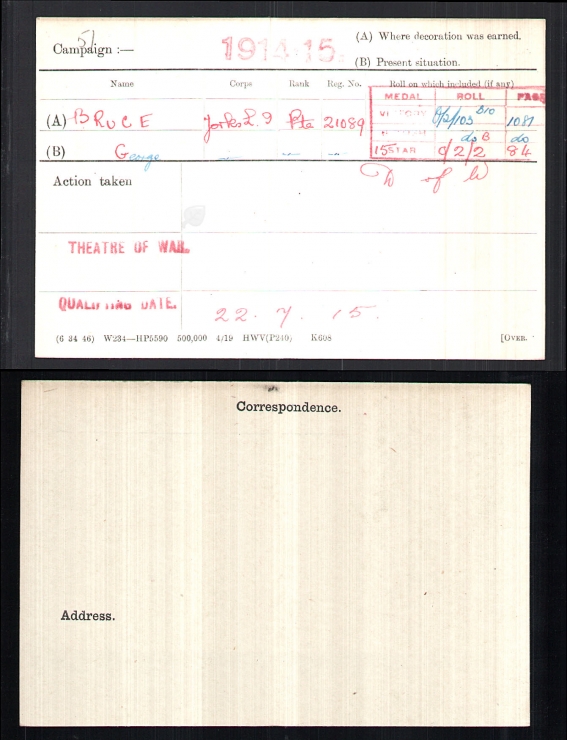 Campaign :— 1914-15. (A) Where decoration was earned.
(B) Present situation.
Name Corps Rank Reg. No. Roll on which included (if any)
MEDAL ROLL PAGE
(A) BRUCE Yorks L. I Pte 21089 VICTORY B/2/103 B10 1081
(B) George do B do
15 STAR C/2/2 84
Action taken D of W
THEATRE OF WAR.
QUALIFYING DATE. 22. 7. 15.
(6 34 46) W234—HP5590 500,000 4/19 HWV(P240) K608 [OVER.
Correspondence.
Address.